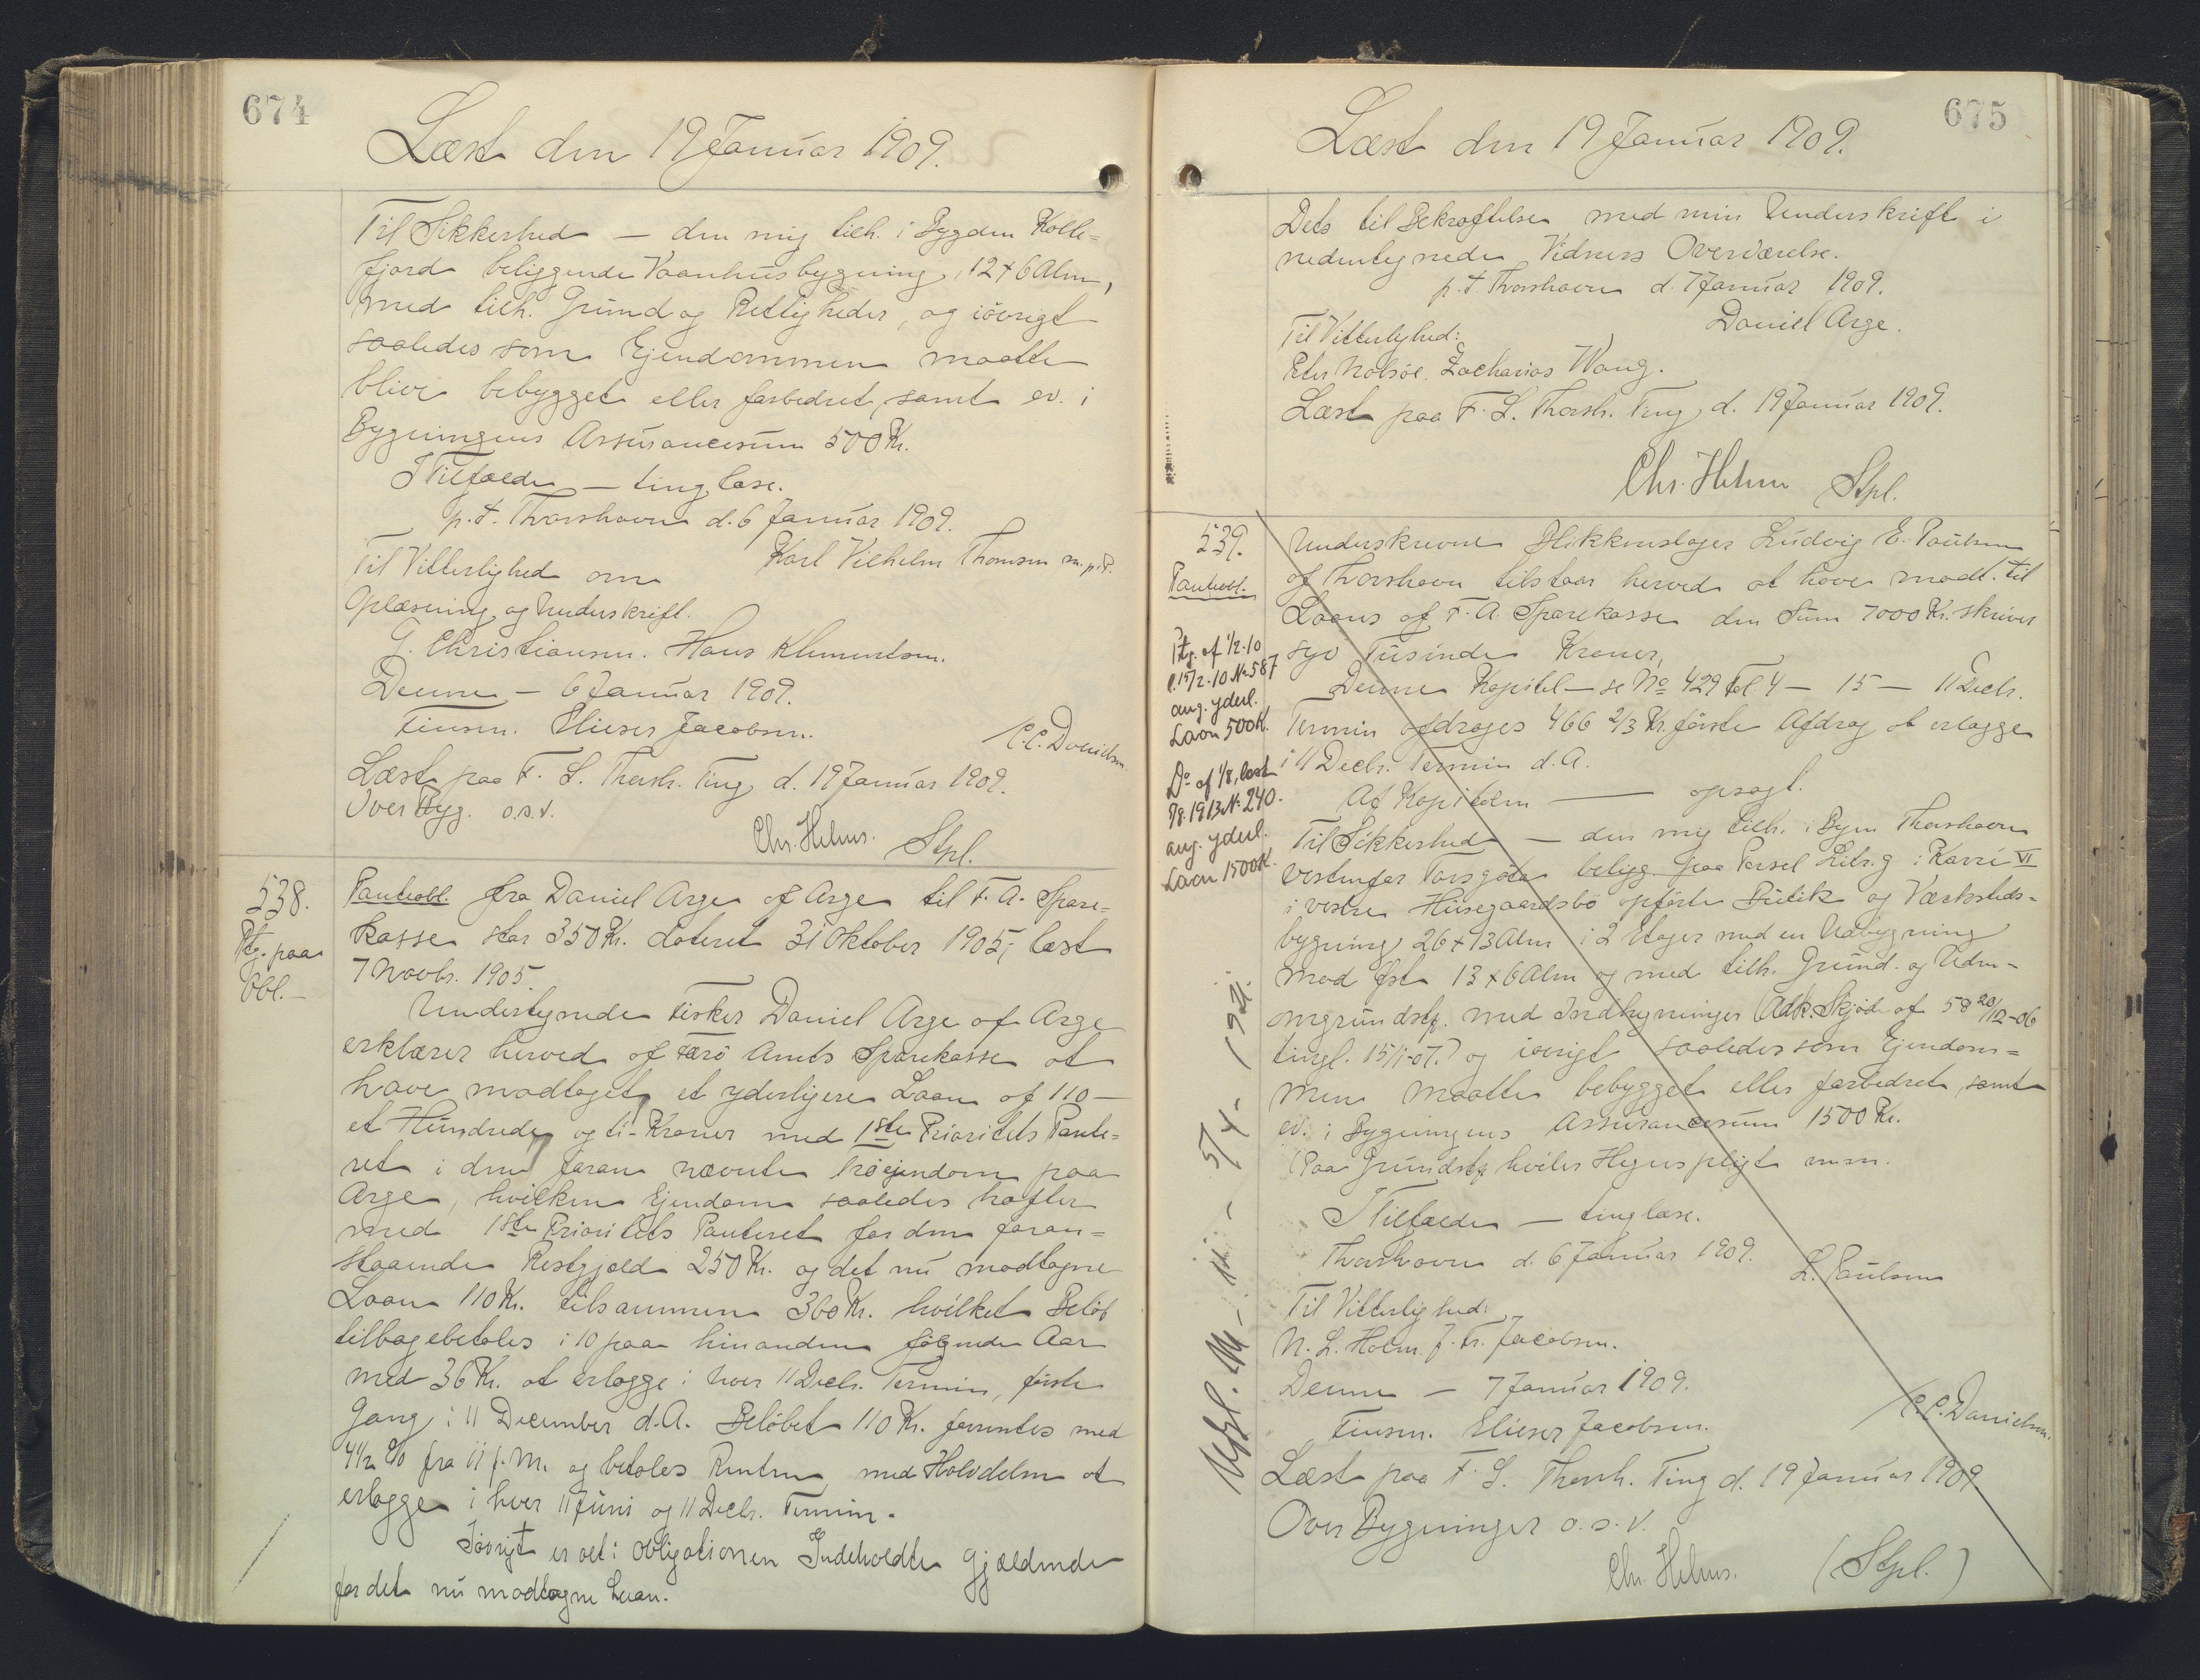 674
Læst den 19 Januar 1909.
Til Sikkerhed — den mig tilh. i Bygden Kolle=
fjord beliggende Vaanhusbygning, 12 x 6 Alm,
med tilh. Grund og Rettigheder, og iövrigt
saaledes som Ejendommen maatte
blive bebygget eller forbedret, samt ev. i
Bygningens Assurancesum 500 Kr.
I Tilfælde — tinglæse.
p. t. Thorshavn d. 6 Januar 1909.
Karl Vilhelm Thomsen m. p. P.
Til Vitterlighed om
Oplæsning og Underskrift.
G. Christiansen. Hans Klementsen.
Denne — 6 Januar 1909.
Finsen. Elieser Jacobsen.
C.C. Danielsen.
Læst paa F. S. Thorsh. Ting d. 19 Januar 1909.
Over Byg. o.s.v.
Chr. Helms. Stpl.
538.
Ptg. paa
Obl.—
Panteobl. fra Daniel Arge af Arge til F. A. Spare=
kasse stor 350 Kr. dateret 31 Oktober 1905, læst
7 Novbr. 1905.
Undertegnede Fisker Daniel Arge af Arge
erklærer herved af Færö Amts Sparekasse at
have modtaget et yderligere Laan af 110 —
et Hundrede og ti — Kroner med 1ste Prioritets Pante=
ret i den foran nævnte Ejendom paa
Arge, hvilken Ejendom saaledes hæfter
med 1ste Prioritets Panteret for den foran=
staaende Restgjæld 250 Kr. og det nu modtagne
Laan 110 Kr. tilsammen 360 Kr. hvilket Belöb
tilbagebetales i 10 paa hinanden fölgende Aar
med 36 Kr. at erlægge i hver 11 Decbr. Termin, förste
Gang i 11 December d.A. Belöbet 110 Kr. forrentes med
4½ % fra 11 f. M. og betales Renten med Halvdelen at
erlægge i hver 11 Juni og 11 Decbr. Termin.
Iövrigt er det i Obligationen Indeholdte gjældende
for det nu modtagne Laan.
675
Læst den 19 Januar 1909.
Dets til Bekræftelse med min Underskrift i
nedentegnede Vidners Overværelse.
p. t. Thorshavn d. 7 Januar 1909.
Daniel Arge.
Til Vitterlighed:
Peter Nolsöe. Zacharias Wang.
Læst paa F. S. Thorsh. Ting d. 19 Januar 1909.
Chr. Helms Stpl.
539.
Panteobl.
Ptg. af 1/2-10
l. 15/2-10 No 587
ang. yderl.
Laan 500 K.
Do af 1/8, læst
5/8 1913 No 240.
ang. yderl.
Laan 1500 K.
Underskrevne Blikkenslager Ludvig E. Poulsen
af Thorshavn tilstaar herved at have modt. til
Laans af F. A. Sparekasse den Sum 7000 Kr. skriver
syv Tusinde Kroner.
Denne Kapital — se No 429 Fol 4 — 15 — 11 Decbr.
Termin afdrages 466 2/3 Kr. förste Afdrag at erlægge
i 11 Decbr. Termin d. A.
Af Kapitalen — opsagt.
Til Sikkerhed — den mig tilh. i Byen Thorshavn
vestenfor Torsgöta belig. paa Parsel Litr. g i Karré VI
i vestre Húsegaardsbö opförte Butik og Værksteds-
bygning 26 x 13 Alm i 2 Etager med en Udbygning
mod Öst 13 x 6 Alm og med tilh. Grund- og Udm-
arkgrundstk. med Indhegninger (Adk. Skjöde af 20/12-06
tingl. 15/1-07.) og iövrigt saaledes som Ejendom=
men maatte bebygget eller forbedret, samt
ev. i Bygningens Assurancesum 1500 Kr.
(Paa Grundstk. hviler Hegnspligt m.m.
I Tilfælde — tinglæse.
Thorshavn d. 6 Januar 1909.
L. Poulsen
Til Vitterlighed:
N. L. Holm. J. Fr. Jacobsen.
Denne — 7 Januar 1909.
Finsen. Elieser Jacobsen.
C.C. Danielsen.
Læst paa F. S. Thorsh. Ting d. 19 Januar 1909
Over Bygninger o. s. v.
Chr. Helms. (Stpl.)